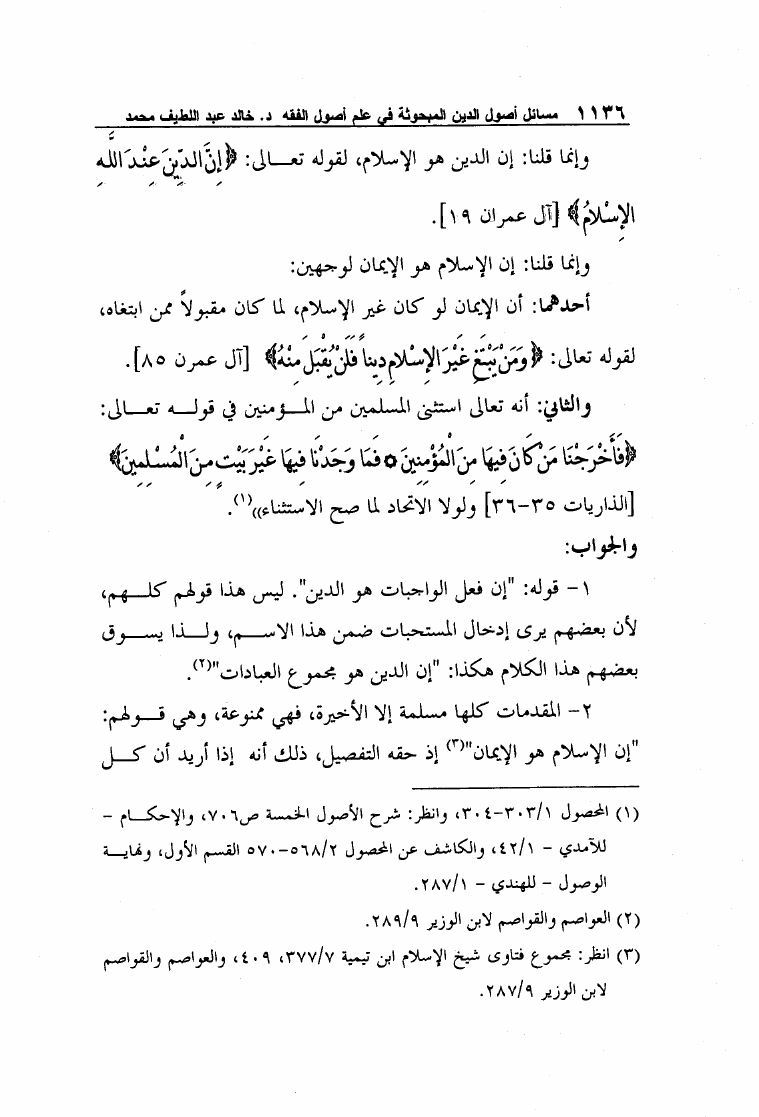 ١١٣٦ مسائل أصول الدين المبحوثة في علم أصول الفقه د. خالد عبد اللطيف محمد
وإنما قلنا: إن الدين هو الإسلام، لقوله تعـــالى: ﴿إِنَّ الدِّينَ عِنْدَ اللَّهِ
الإِسْلامُ﴾ [آل عمران ١٩].
وإنما قلنا: إن الإسلام هو الإيمان لوجهين:
أحدهما: أن الإيمان لو كان غير الإسلام، لما كان مقبولاً ممن ابتغاه،
لقوله تعالى: ﴿وَمَنْ يَبْتَغِ غَيْرَ الإِسْلامِ دِيناً فَلَنْ يُقْبَلَ مِنْهُ﴾ [آل عمرن ٨٥].
والثاني: أنه تعالى استثنى المسلمين من المـــؤمنين في قولـــه تعـــالى:
﴿فَأَخْرَجْنَا مَنْ كَانَ فِيهَا مِنَ الْمُؤْمِنِينَ ۝ فَمَا وَجَدْنَا فِيهَا غَيْرَ بَيْتٍ مِنَ الْمُسْلِمِينَ﴾
[الذاريات ٣٥-٣٦] ولولا الاتحاد لما صح الاستثناء))(١).
والجواب:
١- قوله: "إن فعل الواجبات هو الدين". ليس هذا قولهم كلـــهم،
لأن بعضهم يرى إدخال المستحبات ضمن هذا الاســـم، ولـــذا يســـوق
بعضهم هذا الكلام هكذا: "إن الدين هو مجموع العبادات"(٢).
٢- المقدمات كلها مسلمة إلا الأخيرة، فهي ممنوعة، وهي قـــولهم:
"إن الإسلام هو الإيمان"(٣) إذ حقه التفصيل، ذلك أنه إذا أريد أن كـــل
(١) المحصول ٣٠٣/١-٣٠٤، وانظر: شرح الأصول الخمسة ص٧٠٦، والإحكـــام -
للآمدي - ٤٢/١، والكاشف عن المحصول ٥٦٨/٢-٥٧٠ القسم الأول، ونهايـــة
الوصول - للهندي - ٢٨٧/١.
(٢) العواصم والقواصم لابن الوزير ٢٨٩/٩.
(٣) انظر: مجموع فتاوى شيخ الإسلام ابن تيمية ٣٧٧/٧، ٤٠٩، والعواصم والقواصم
لابن الوزير ٢٨٧/٩.